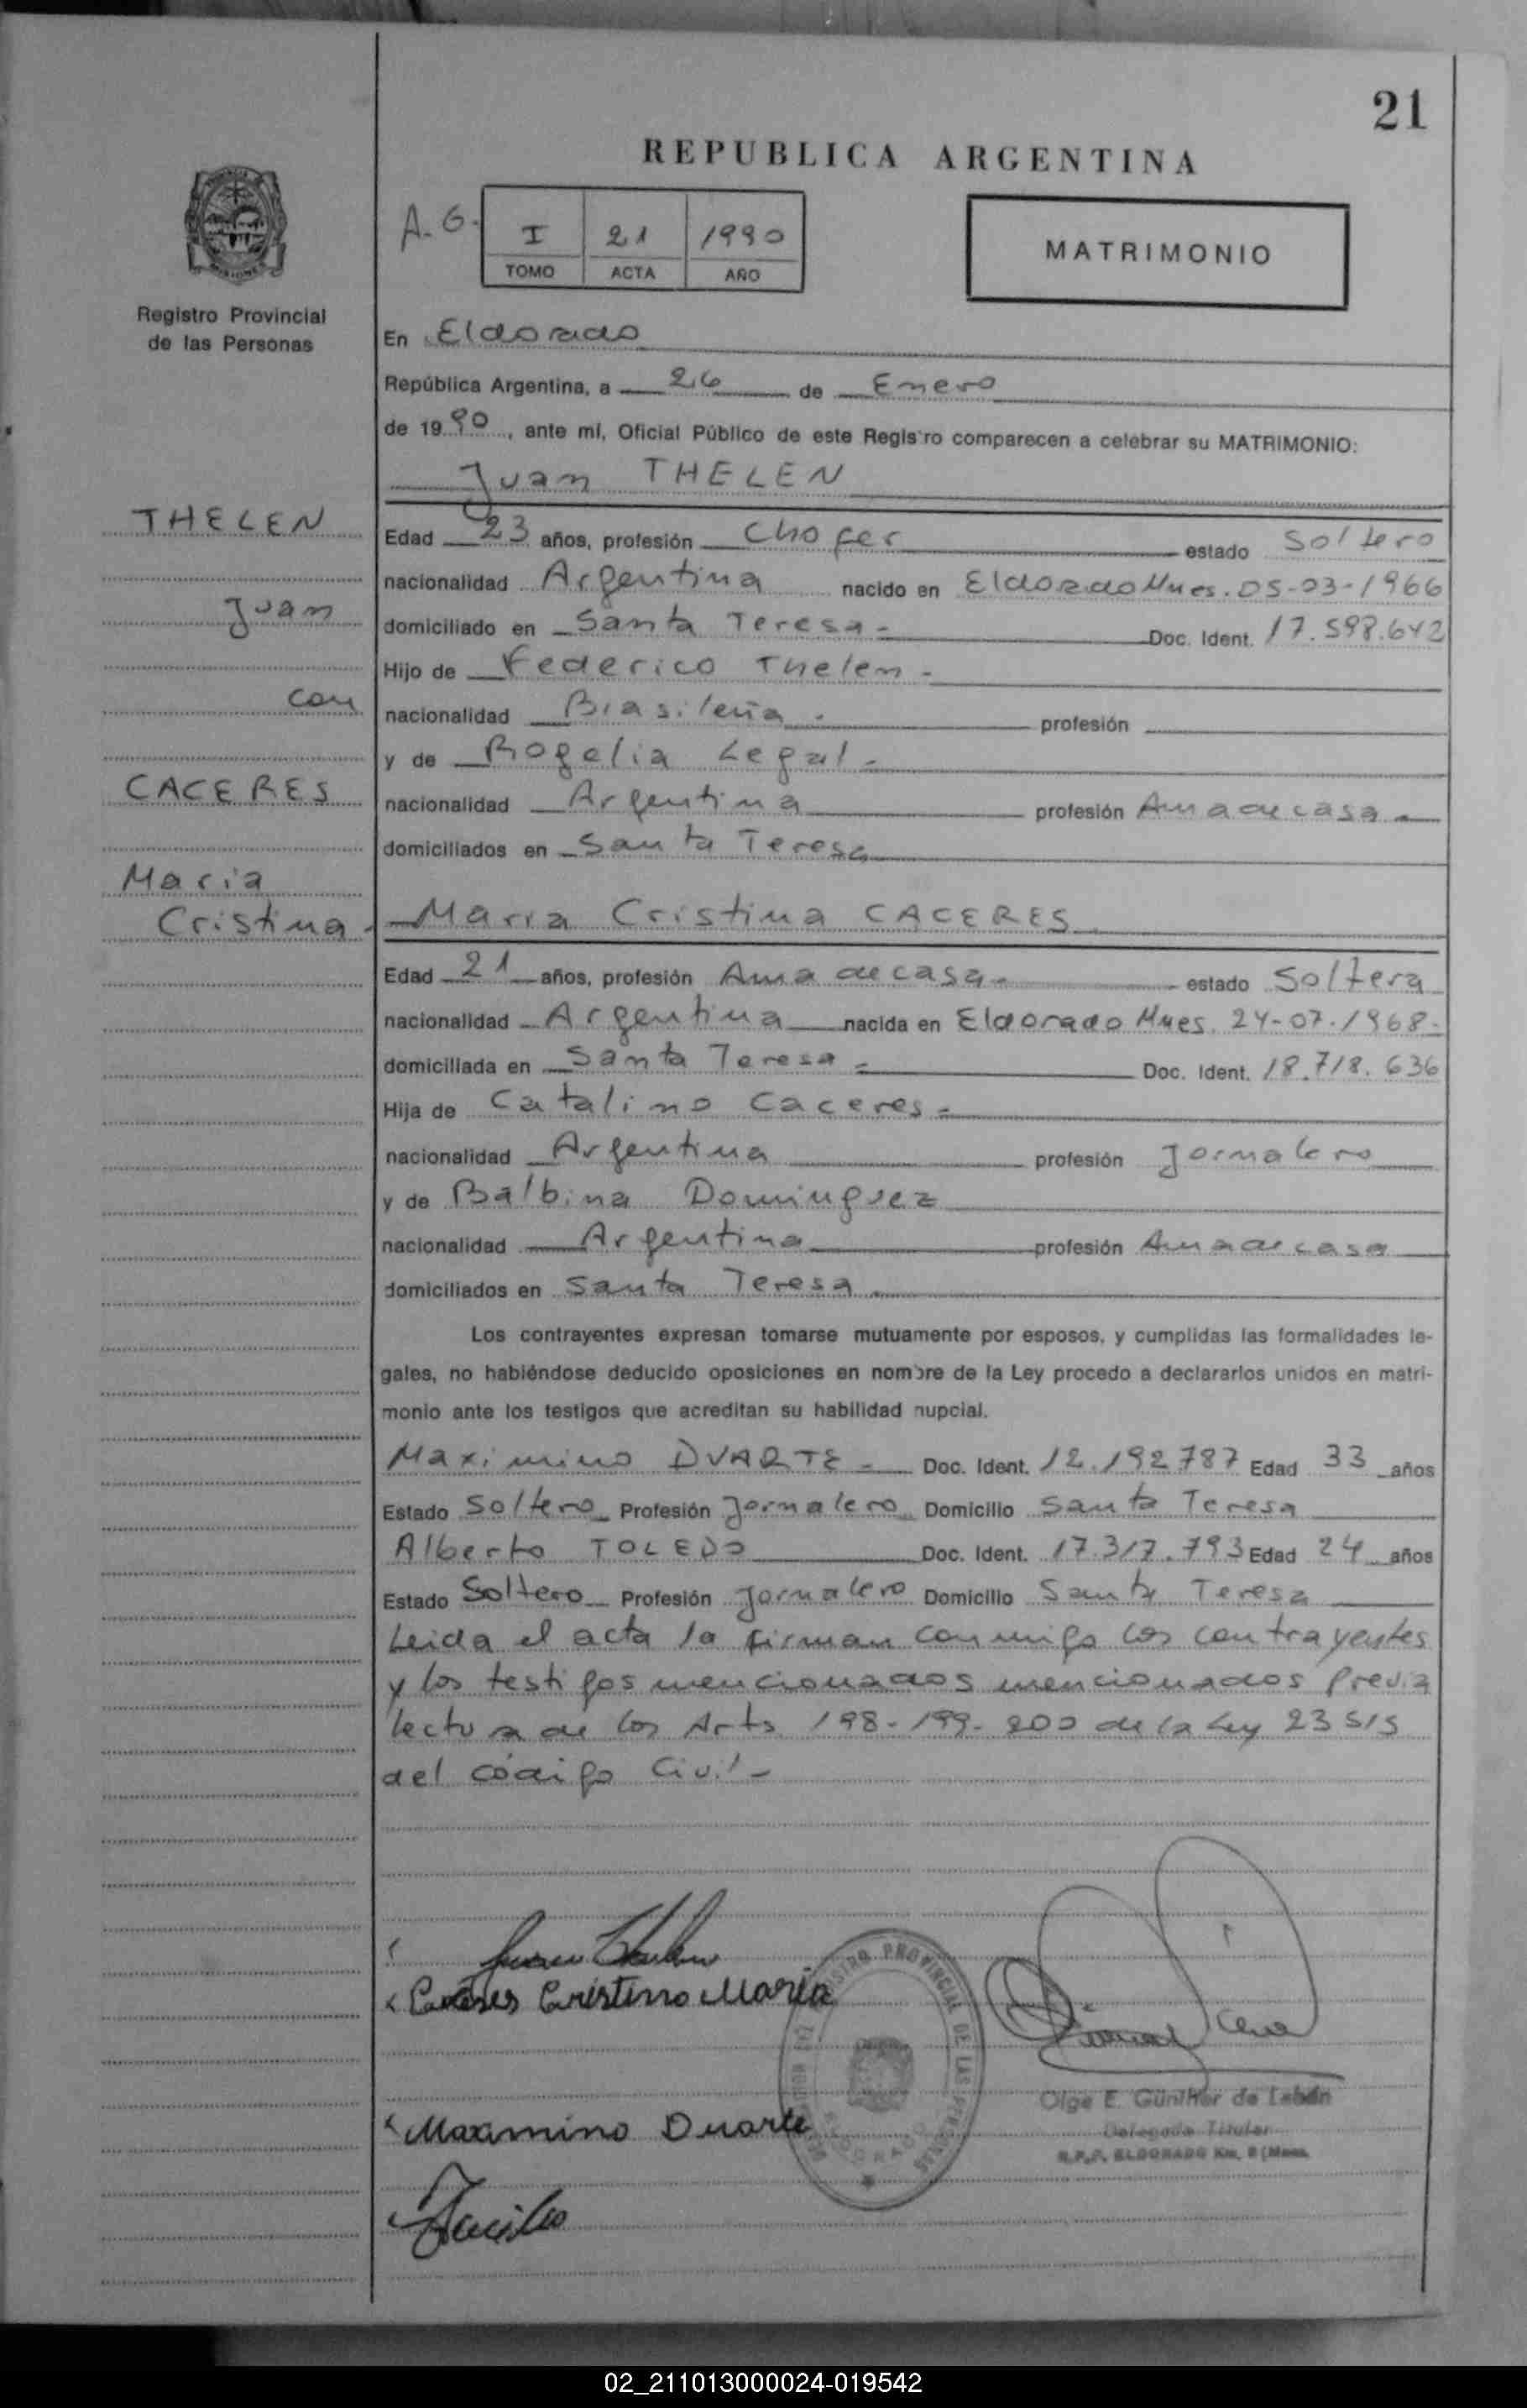 21
REPUBLICA ARGENTINA
A.G.
I 21 1990
TOMO ACTA AÑO
MATRIMONIO
Registro Provincial
de las Personas
En Eldorado
República Argentina, a 26 de Enero
de 1990, ante mí, Oficial Público de este Regis'ro comparecen a celebrar su MATRIMONIO:
Juan THELEN
THELEN
Juan
con
CACERES
Maria
Cristina
Edad 23 años, profesión Chofer estado Soltero
nacionalidad Argentina nacido en Eldorado Mnes. 05-03-1966
domiciliado en Santa Teresa- Doc. Ident. 17.598.642
Hijo de Federico Thelen-
nacionalidad Brasileña. profesión
y de Rogelia Legal-
nacionalidad Argentina profesión Ama de casa-
domiciliados en Santa Teresa
Maria Cristina CACERES
Edad 21 años, profesión Ama de casa- estado Soltera
nacionalidad Argentina nacida en Eldorado Mnes. 24-07-1968-
domiciliada en Santa Teresa- Doc. Ident. 18.718.636
Hija de Catalino Caceres-
nacionalidad Argentina profesión Jornalero
y de Balbina Dominguez
nacionalidad Argentina profesión Ama de casa
domiciliados en Santa Teresa
Los contrayentes expresan tomarse mutuamente por esposos, y cumplidas las formalidades le-
gales, no habiéndose deducido oposiciones en nombre de la Ley procedo a declararlos unidos en matri-
monio ante los testigos que acreditan su habilidad nupcial.
Maximino DUARTE- Doc. Ident. 12.192787 Edad 33 años
Estado Soltero Profesión Jornalero Domicilio Santa Teresa
Alberto TOLEDO Doc. Ident. 17.317.793 Edad 24 años
Estado Soltero Profesión Jornalero Domicilio Santa Teresa
Leida el acta la firman conmigo los contrayentes
y los testigos mencionados mencionados previa
lectura de los Arts 198-199-200 de la Ley 23515
del código Civil-
Caceres Cristina Maria
REGISTRO PROVINCIAL DE LAS PERSONAS
ELDORADO
Olga E. Günther de Lebán
Delegada Titular
R.P.P. ELDORADO Km. 9 (Mnes.
Maximino Duarte
02_211013000024-019542